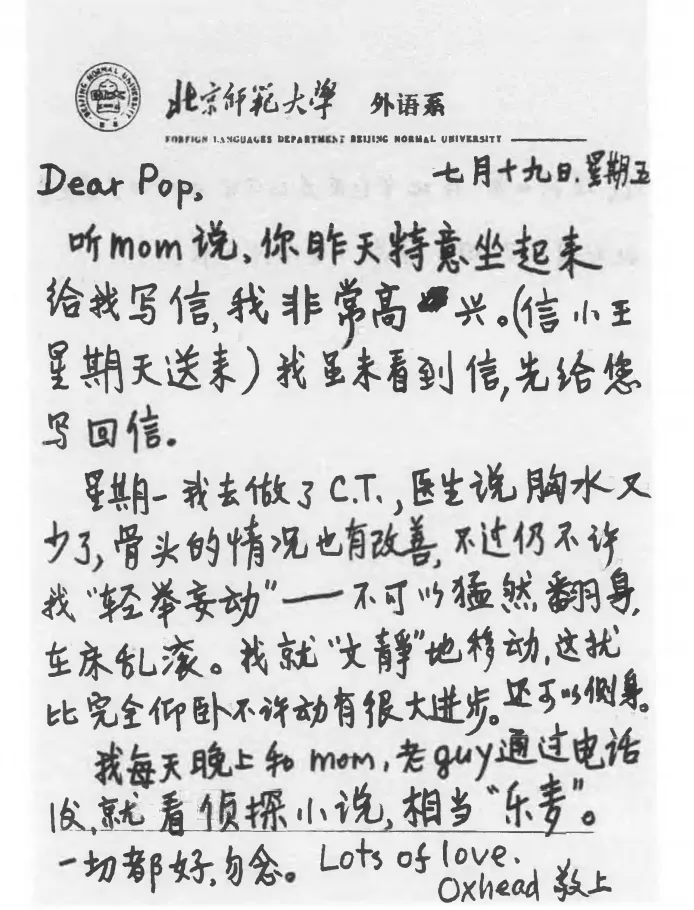 BEIJING NORMAL UNIVERSITY
北京师范大学 外语系
FOREIGN LANGUAGES DEPARTMENT BEIJING NORMAL UNIVERSITY
七月十九日.星期五
Dear Pop,
听mom说,你昨天特意坐起来
给我写信,我非常高兴。(信小王
星期天送来)我虽未看到信,先给您
写回信。
星期一我去做了C.T.,医生说胸水又
少了,骨头的情况也有改善,不过仍不许
我“轻举妄动”——不可以猛然翻身,
在床乱滚。我就“文静”地移动,这就
比完全仰卧不许动有很大进步。还可以侧身。
我每天晚上和mom,老guy通过电话
后,就看侦探小说,相当“乐妻”。
一切都好,勿念。Lots of love.
Oxhead 敬上